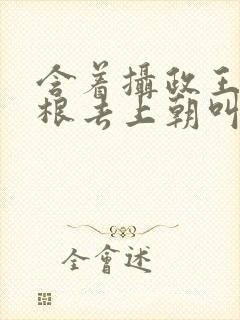 含着攝政王
根去上朝叫
全會述